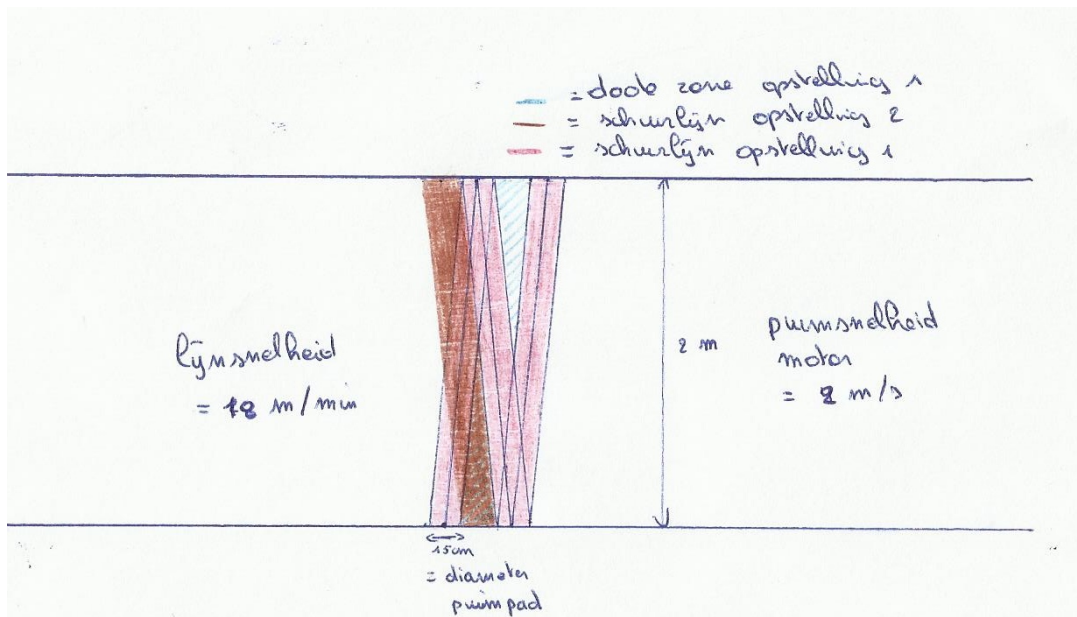 = dode zone opstelling 1
= schuurlijn opstelling 2
= schuurlijn opstelling 1
lijnsnelheid
= 18 m/min
2 m
puimsnelheid
motor
= 2 m/s
15cm
= diameter
puimpad